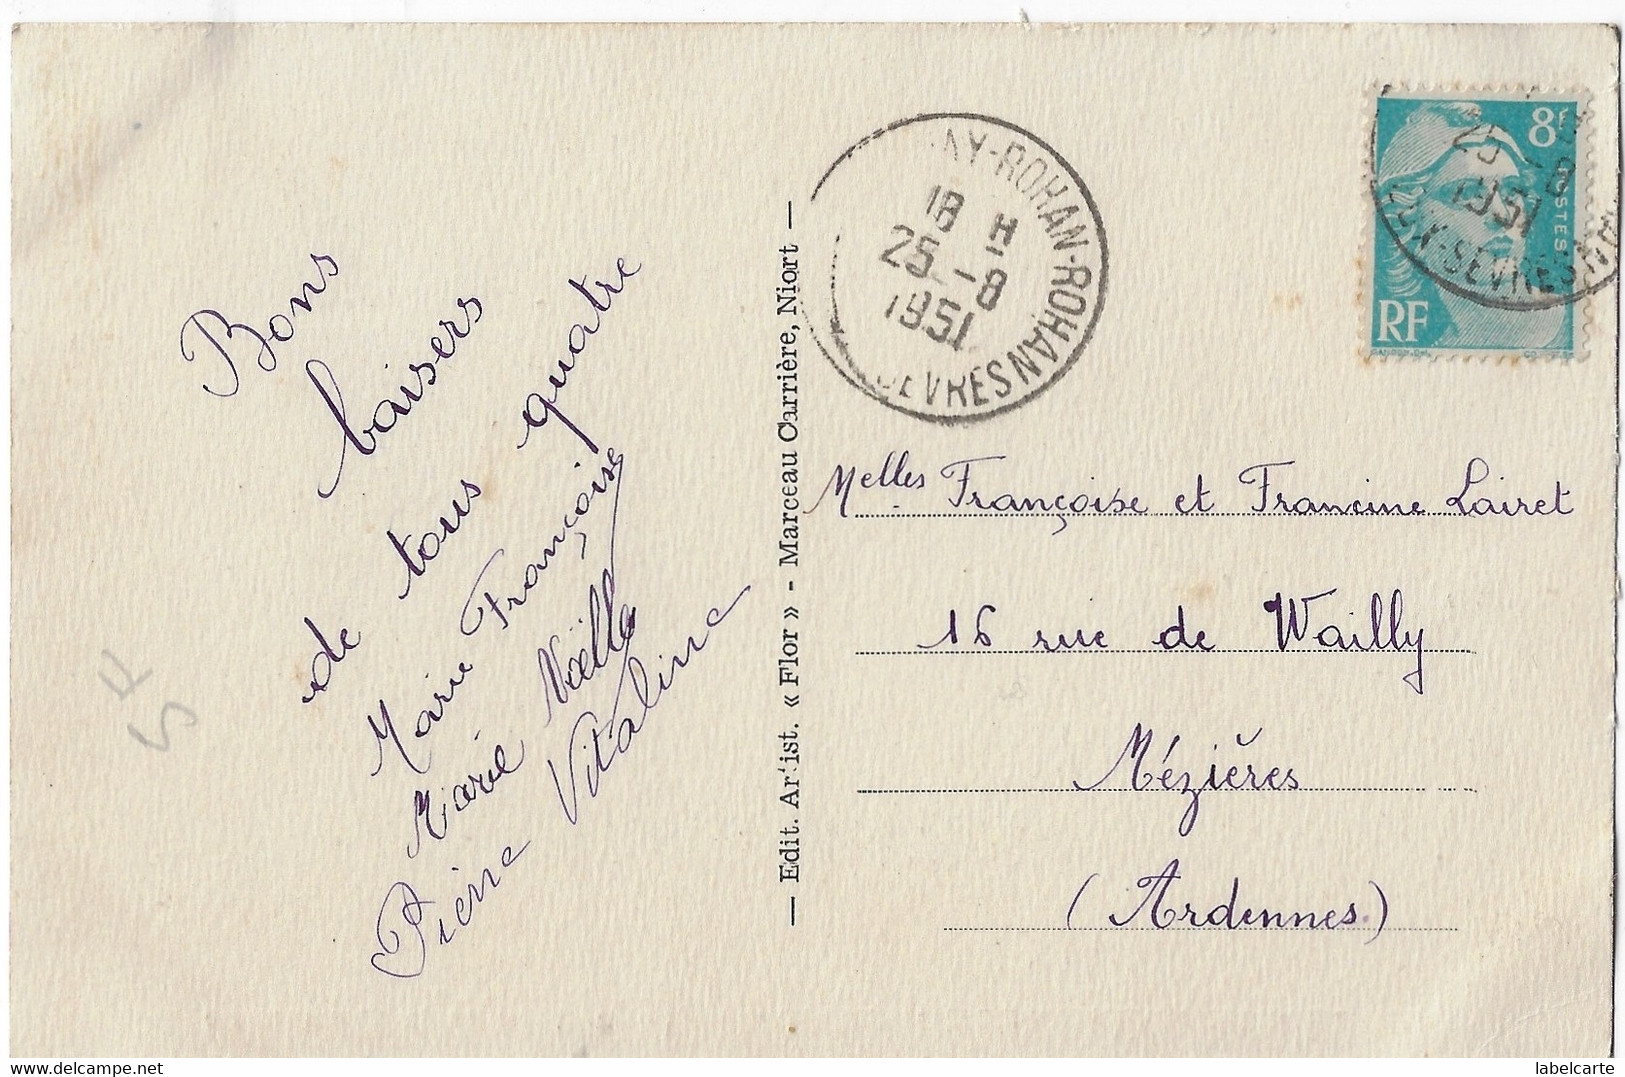 Bons
baisers
de tous quatre
Marie Françoise
Marie Noëlle
Pierre Vitaline
— Edit. Artist. « Flor » - Marceau Carrière, Niort —
NY-ROHAN-ROHAN
18 H
25 -8
1951
SEVRES
8F
POSTES
RF
25 -8
1951
X-SEVRES
GANDON.Del.
Melles Françoise et Francine Lairet
16 rue de Wailly
Mézières
(Ardennes)
labelcarte